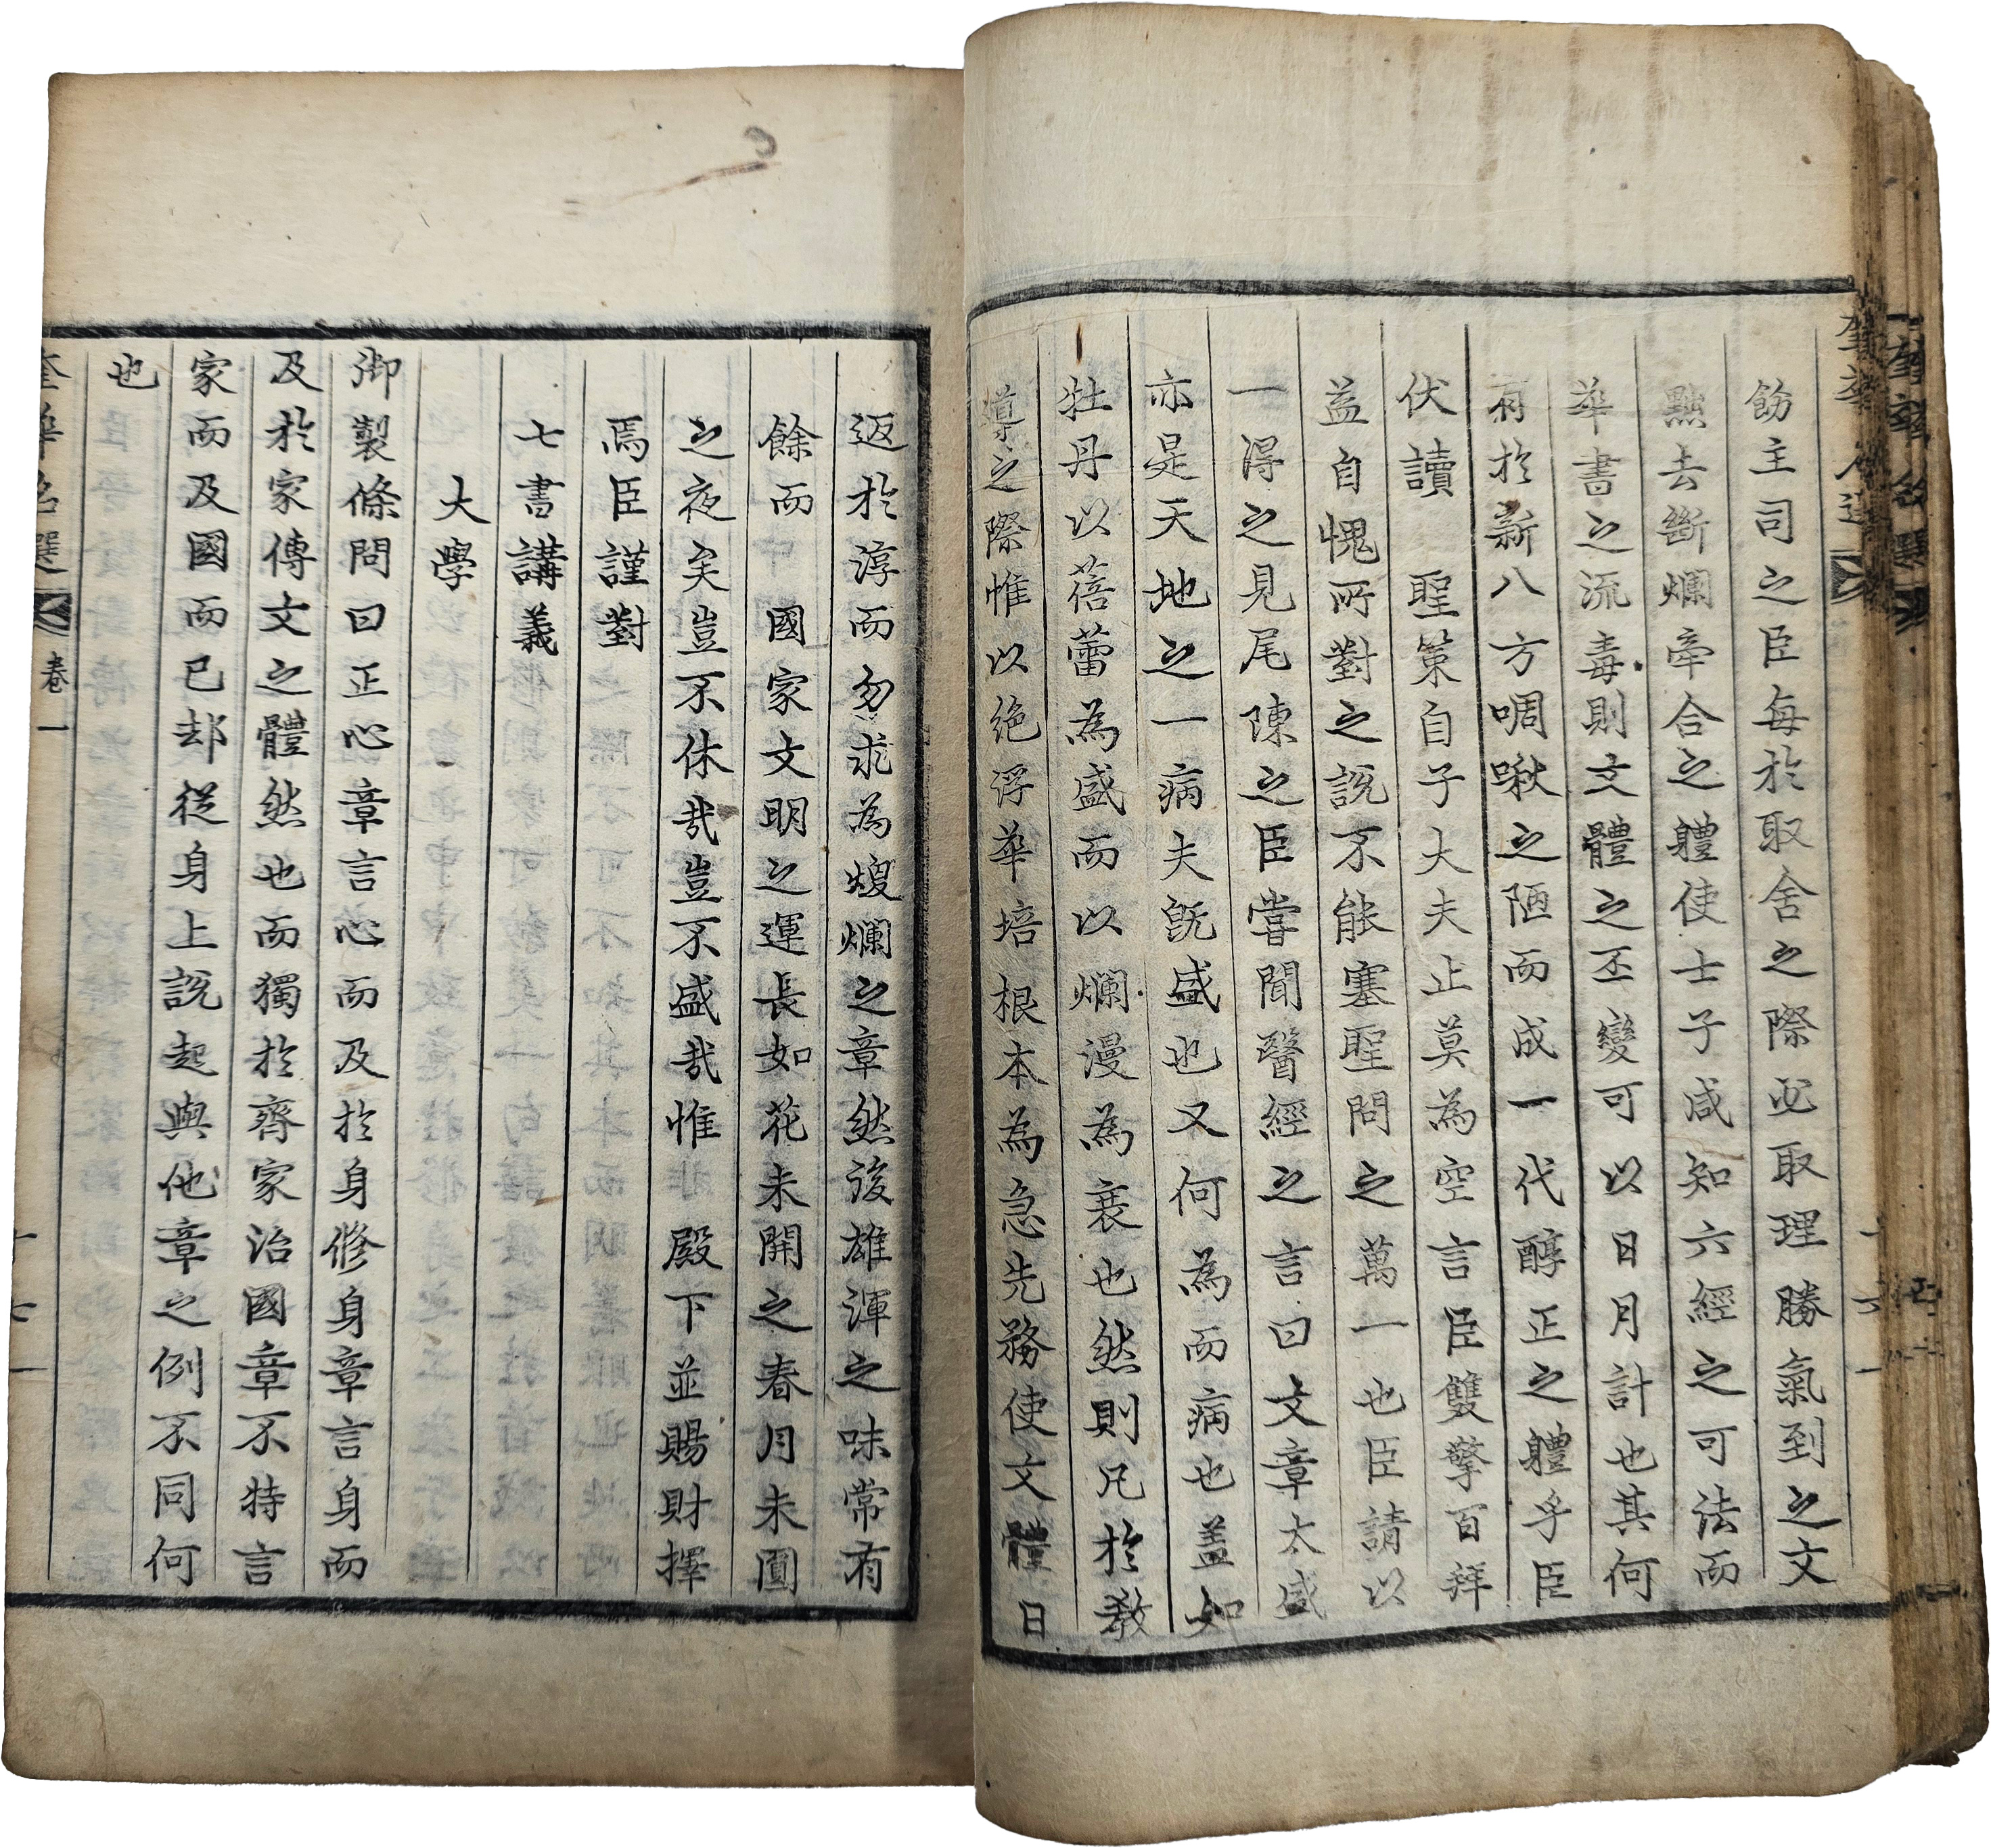 飭主司之臣每於取舍之際必取理勝氣到之文
黜去斷爛牽合之軆使士子咸知六經之可法而
華書之流毒則文體之丕變可以日月計也其何
有於新八方啁啾之陋而成一代醇正之軆乎臣
伏讀 聖策自子大夫止莫為空言臣雙擎百拜
益自愧所對之說不能塞聖問之萬一也臣請以
一得之見尾陳之臣嘗聞醫經之言曰文章太盛
亦是天地之一病夫旣盛也又何為而病也盖如
牡丹以蓓蕾為盛而以爛漫為衰也然則凡於教
導之際惟以絶浮華培根本為急先務使文體日
返於淳而勿求為熳爛之章然後雄渾之味常有
餘而 國家文明之運長如花未開之春月未圓
之夜矣豈不休哉豈不盛哉惟 殿下並賜財擇
焉臣謹對
七書講義
大學
御製條問曰正心章言心而及於身修身章言身而
及於家傳文之體然也而獨於齊家治國章不特言
家而及國而已却從身上說起與他章之例不同何
也
奎華名選 卷一